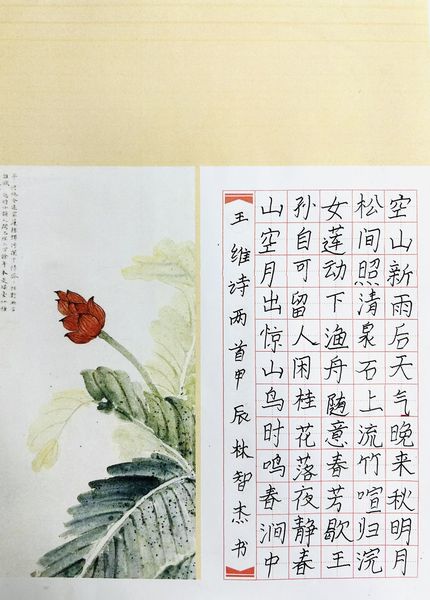 空山新雨后天气晚来秋明月
松间照清泉石上流竹喧归浣
女莲动下渔舟随意春芳歇王
孙自可留人闲桂花落夜静春
山空月出惊山鸟时鸣春涧中
王维诗两首甲辰林智杰书